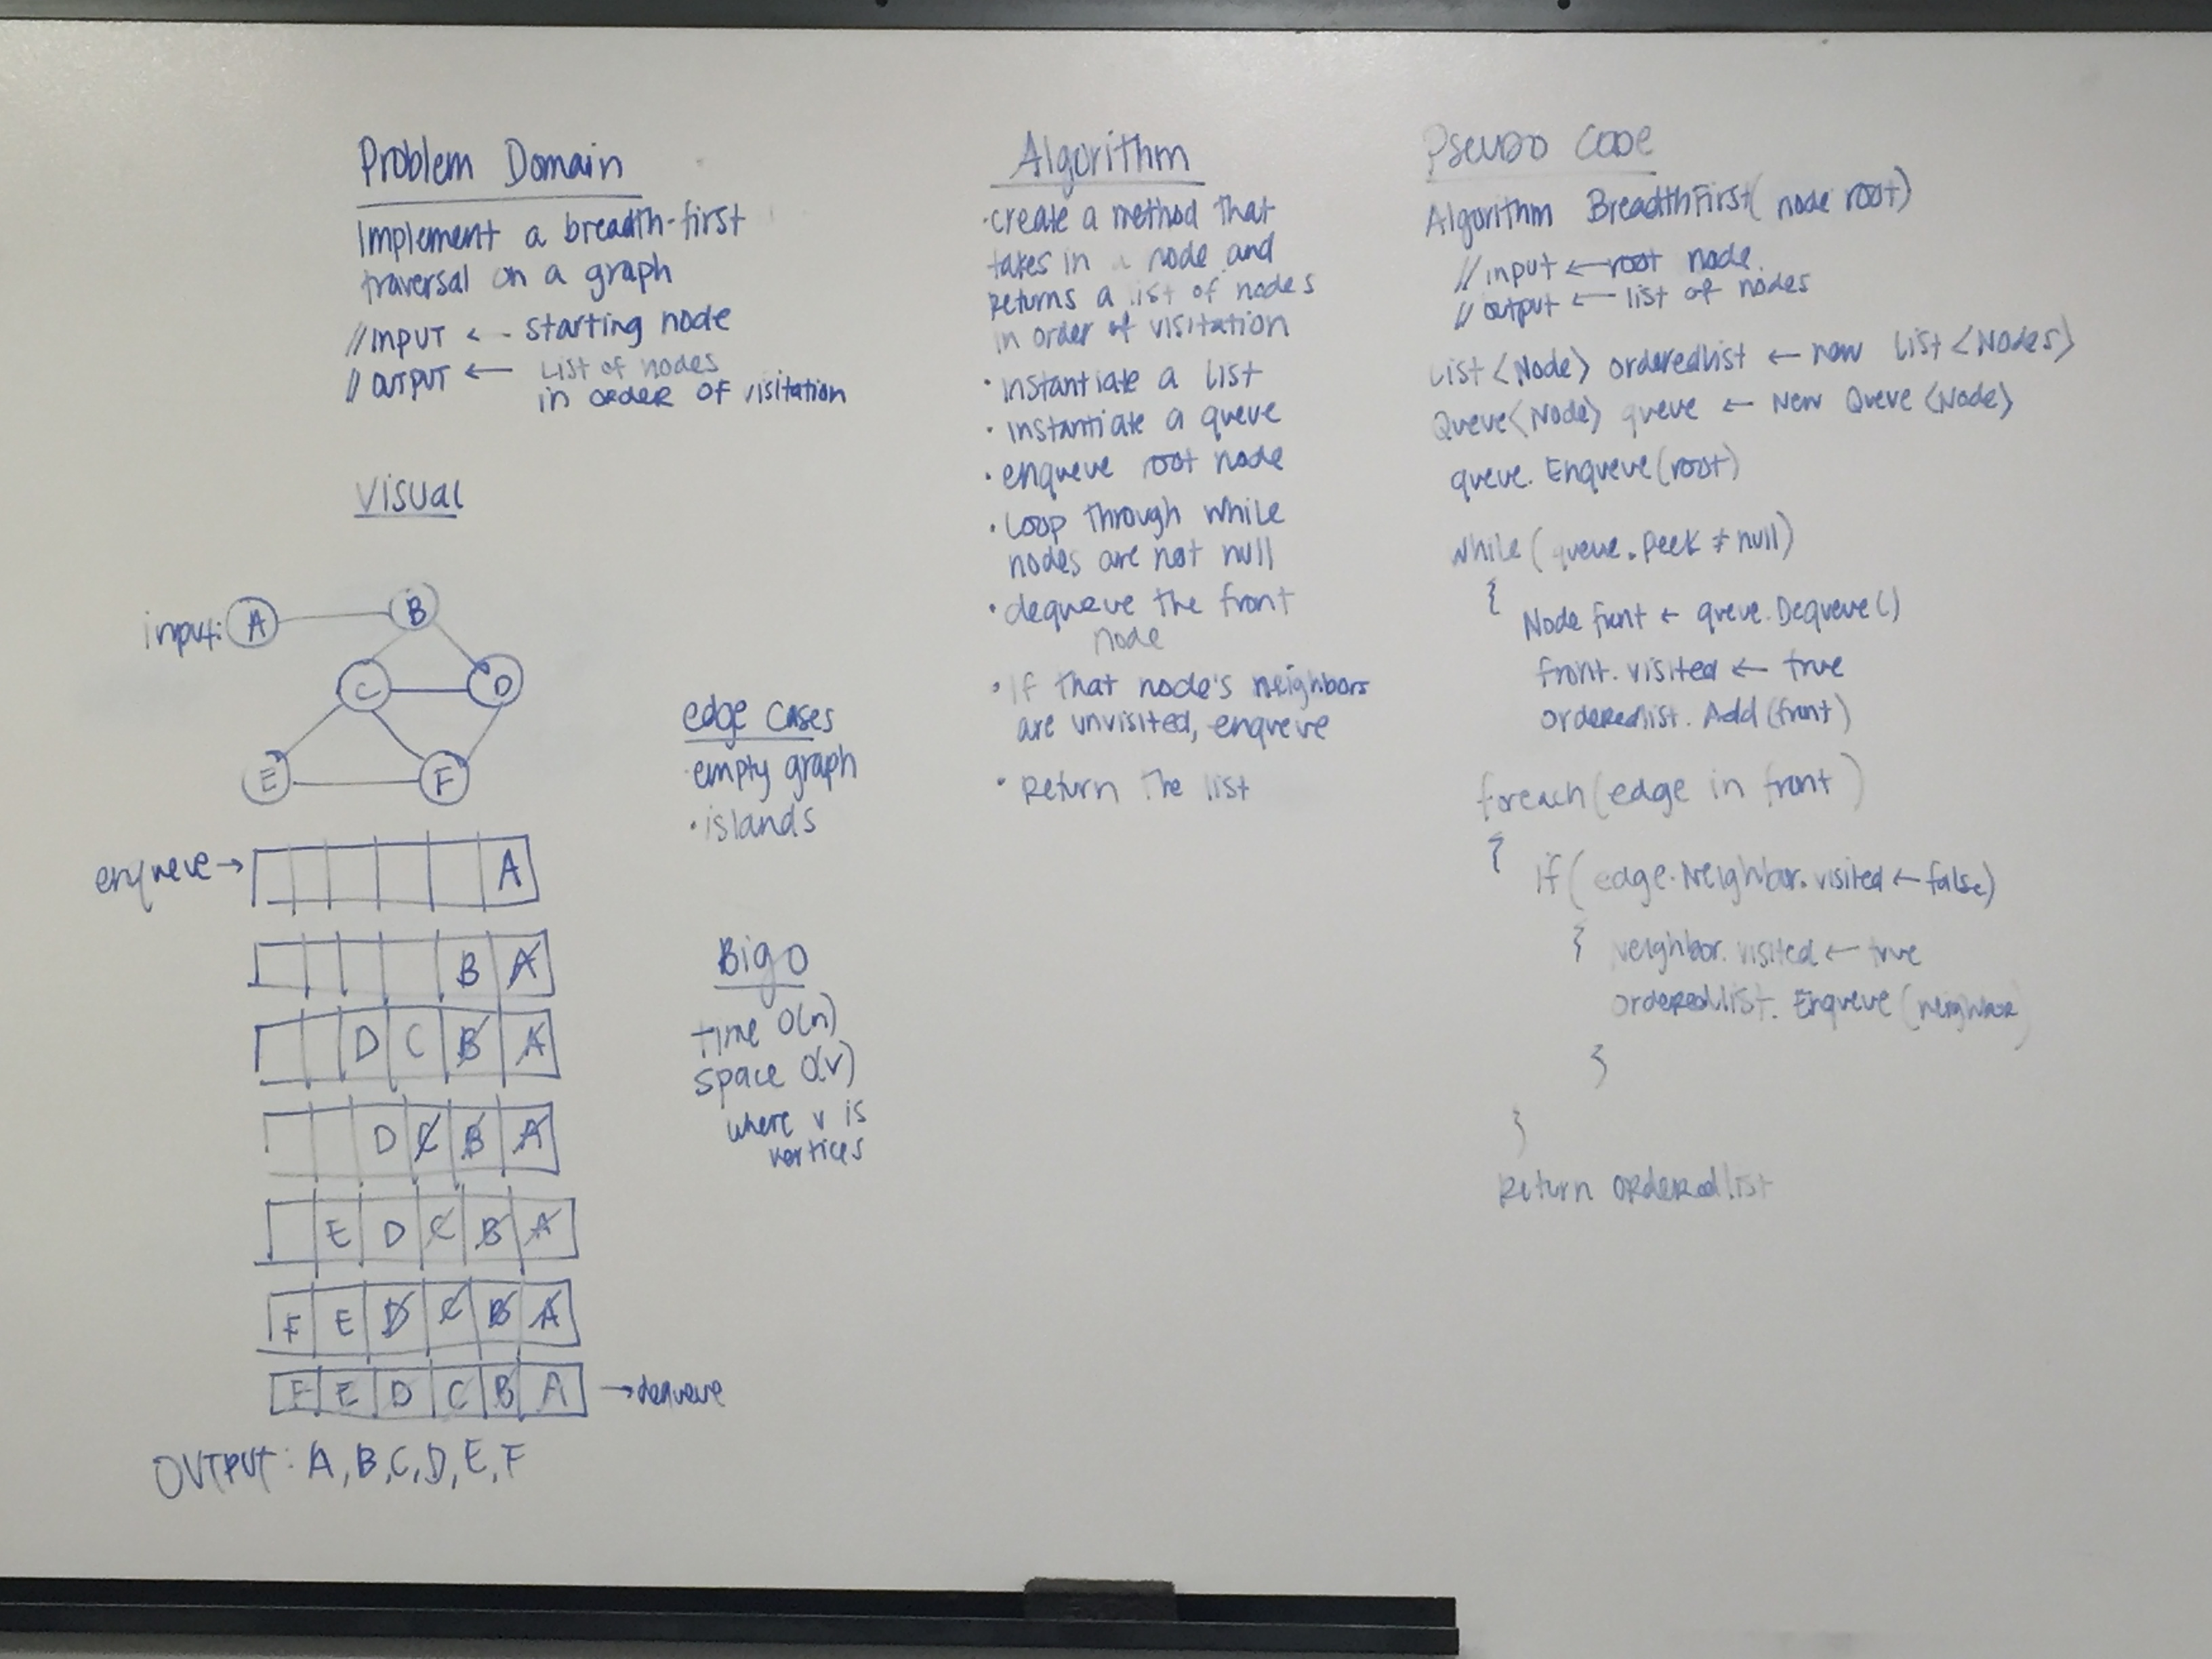 Problem Domain
Implement a breadth-first
traversal on a graph
//INPUT ← starting node
//OUTPUT ← List of nodes
in ORDER OF visitation
Visual
input: A B
C D
E F
enqueue → A
B A
D C B A
D C B A
E D C B A
F E D C B A
F E D C B A → dequeue
OUTPUT: A, B, C, D, E, F
edge cases
· empty graph
· islands
Big O
time O(n)
space O(v)
where v is
vertices
Algorithm
· create a method that
takes in a node and
returns a list of nodes
in order of visitation
· instantiate a list
· instantiate a queue
· enqueue root node
· Loop through while
nodes are not null
· dequeue the front
node
· If that node's neighbors
are unvisited, enqueue
· Return The list
Pseudo Code
Algorithm BreadthFirst( node root)
//input ← root node
// output ← list of nodes
List <Node> orderedlist ← new List <Nodes>
Queue<Node> queue ← New Queue <Node>
queue. Enqueue (root)
while ( queue.peek ≠ null)
{
Node front ← queue.Dequeue()
front. visited ← true
orderedlist. Add (front)
foreach (edge in front )
{
if ( edge.Neighbor.visited ← false)
{ neighbor. visited ← true
orderedlist. Enqueue (neighbor)
}
}
Return orderedlist